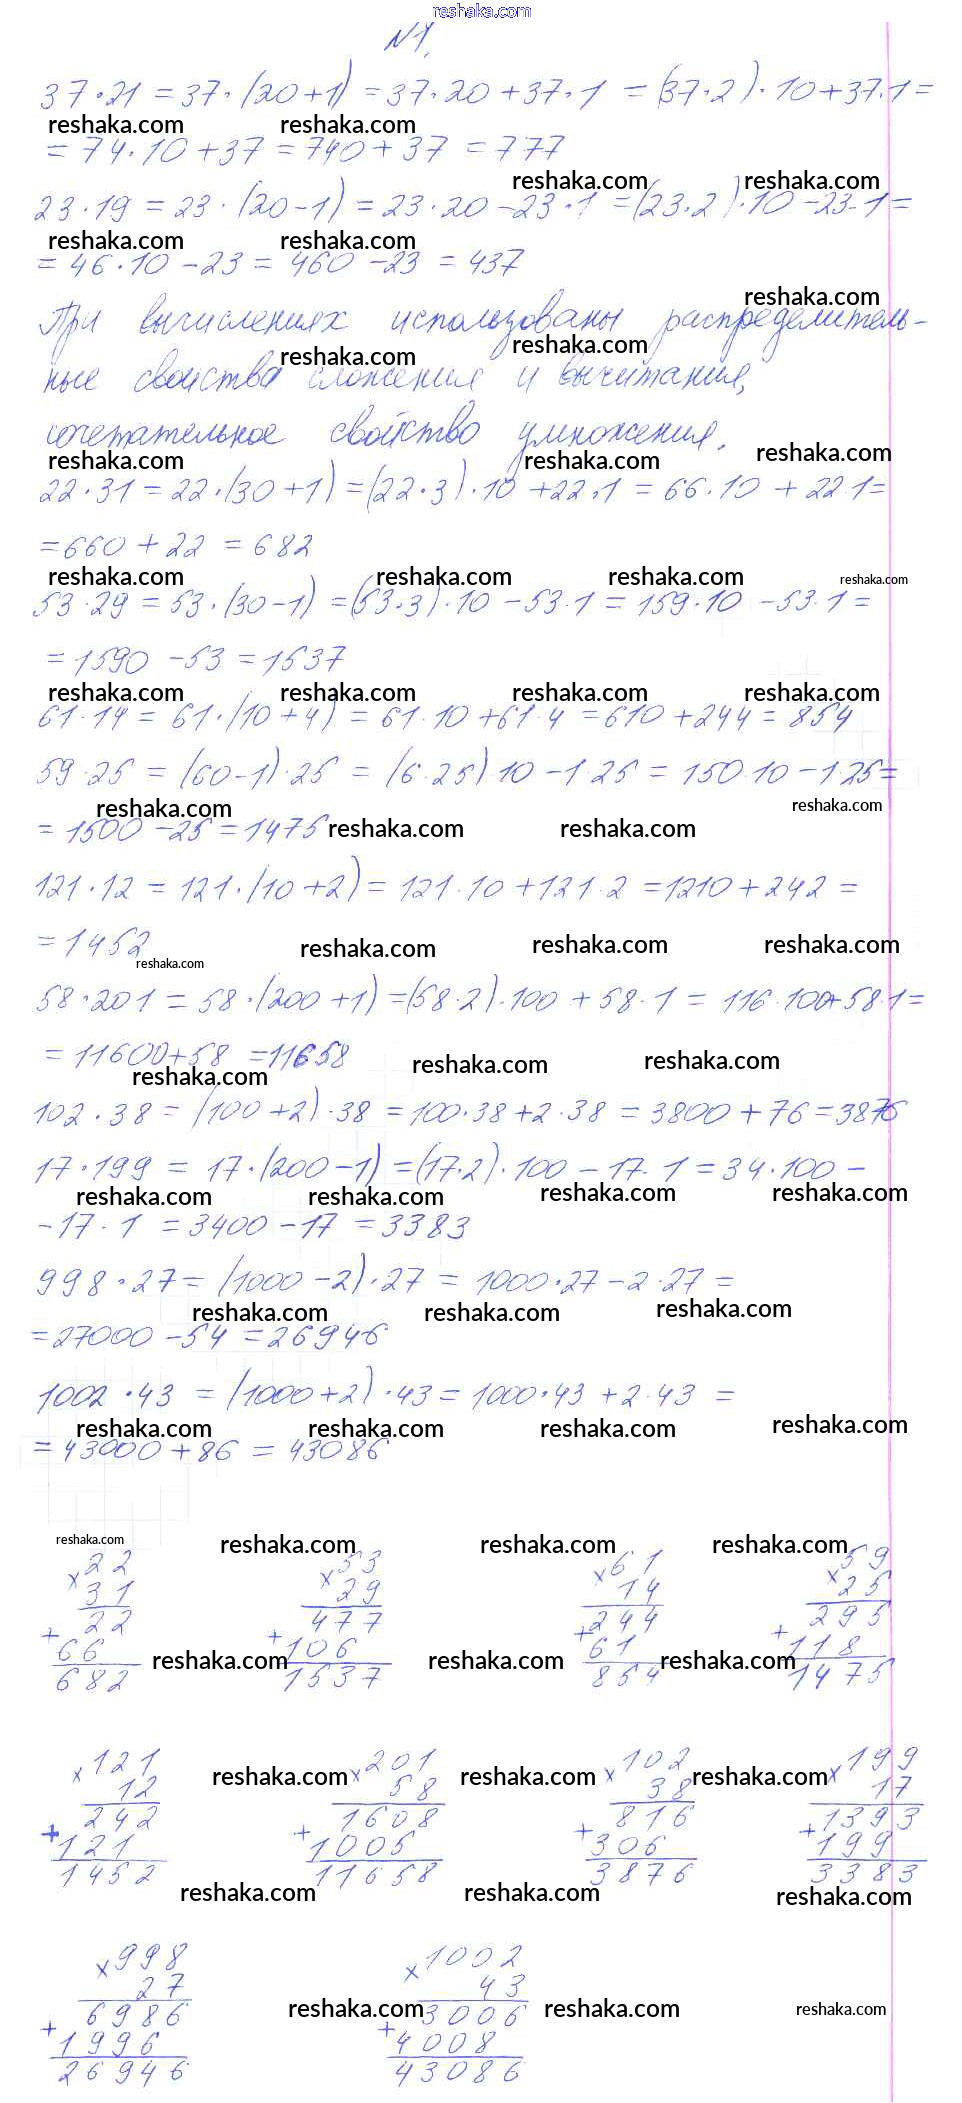 reshaka.com
№1.
37·21 = 37·(20+1) = 37·20 + 37·1 = (37·2)·10 + 37·1 =
reshaka.com reshaka.com
= 74·10 + 37 = 740 + 37 = 777
reshaka.com reshaka.com
23·19 = 23·(20-1) = 23·20 - 23·1 = (23·2)·10 - 23·1 =
reshaka.com reshaka.com
= 46·10 - 23 = 460 - 23 = 437
reshaka.com
При вычислениях использованы распределитель-
reshaka.com reshaka.com
ные свойства сложения и вычитания,
сочетательное свойство умножения.
reshaka.com reshaka.com reshaka.com
22·31 = 22·(30+1) = (22·3)·10 + 22·1 = 66·10 + 22·1 =
= 660 + 22 = 682
reshaka.com reshaka.com reshaka.com reshaka.com
53·29 = 53·(30-1) = (53·3)·10 - 53·1 = 159·10 - 53·1 =
= 1590 - 53 = 1537
reshaka.com reshaka.com reshaka.com reshaka.com
61·14 = 61·(10+4) = 61·10 + 61·4 = 610 + 244 = 854
59·25 = (60-1)·25 = (6·25)10 - 1·25 = 150·10 - 1·25 =
reshaka.com reshaka.com
= 1500 - 25 = 1475 reshaka.com reshaka.com
121·12 = 121·(10+2) = 121·10 + 121·2 = 1210 + 242 =
= 1452
reshaka.com reshaka.com reshaka.com reshaka.com
58·201 = 58·(200+1) = (58·2)·100 + 58·1 = 116·100 + 58·1 =
= 11600 + 58 = 11658
reshaka.com reshaka.com reshaka.com
102·38 = (100+2)·38 = 100·38 + 2·38 = 3800 + 76 = 3876
17·199 = 17·(200-1) = (17·2)·100 - 17·1 = 34·100 -
reshaka.com reshaka.com reshaka.com reshaka.com
- 17·1 = 3400 - 17 = 3383
998·27 = (1000-2)·27 = 1000·27 - 2·27 =
reshaka.com reshaka.com reshaka.com
= 27000 - 54 = 26946
1002·43 = (1000+2)·43 = 1000·43 + 2·43 =
reshaka.com reshaka.com reshaka.com reshaka.com
= 43000 + 86 = 43086
reshaka.com reshaka.com reshaka.com reshaka.com
×22 ×53 ×61 ×59
31 29 14 25
22 477 244 295
+ + + +
66 106 61 118
reshaka.com reshaka.com reshaka.com
682 1537 854 1475
×121 ×201 ×102 ×199
reshaka.com reshaka.com reshaka.com
12 58 38 17
242 1608 816 1393
+ + + +
121 1005 306 199
1452 11658 3876 3383
reshaka.com reshaka.com reshaka.com
×998 ×1002
27 43
6986 3006
reshaka.com reshaka.com reshaka.com
+ +
1996 4008
26946 43086